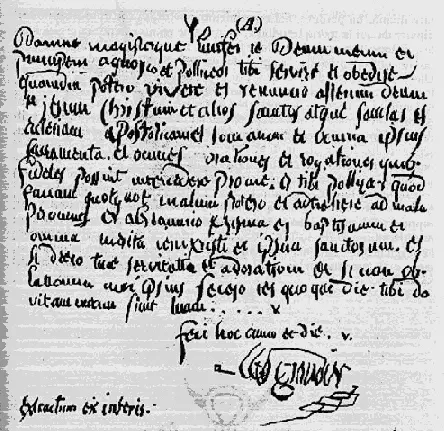 (A)
Domine magisterque Lucifer te Deum meum et
principem agnosco et polliceor tibi servire et obedire
quamdiu potero vivere et renuncio alterum deum
et Jesum Christum et alios sanctos atque sanctas et
eclesiam Apostolicam et romanam et omnia ipsius
sacramenta et omnes orationes et rogationes quibus
fideles possint intercedere pro me et tibi polliceor quod
faciam quotquot malum potero et attrahere ad mala
per omnes et abrenuncio chrisma et baptismum et
omnia merita iesu christi et ipsius sanctorum et
si deero tuae servituti et adorationi et si non ob-
lationem mei ipsius fecero ter quoque die tibi do
vitam meam sicut tuam.....
feci hoc anno et die.
extractum ex infernis.